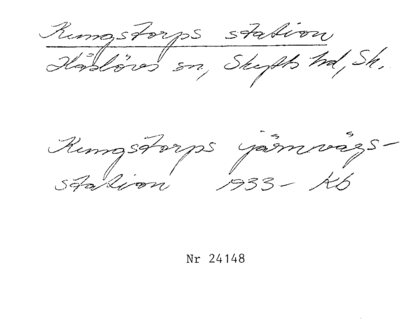 Kungstorps station
Håslövs sn, Skytts hd, Sk.
Kungstorps järnvägs-
station 1933- Kb
Nr 24148